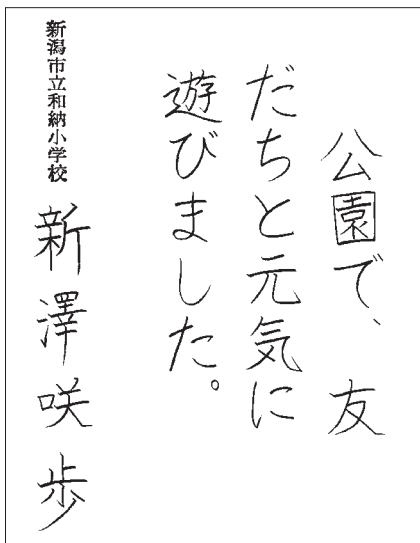 公園で、友
だちと元気に
遊びました。
新潟市立和納小学校
新澤咲歩